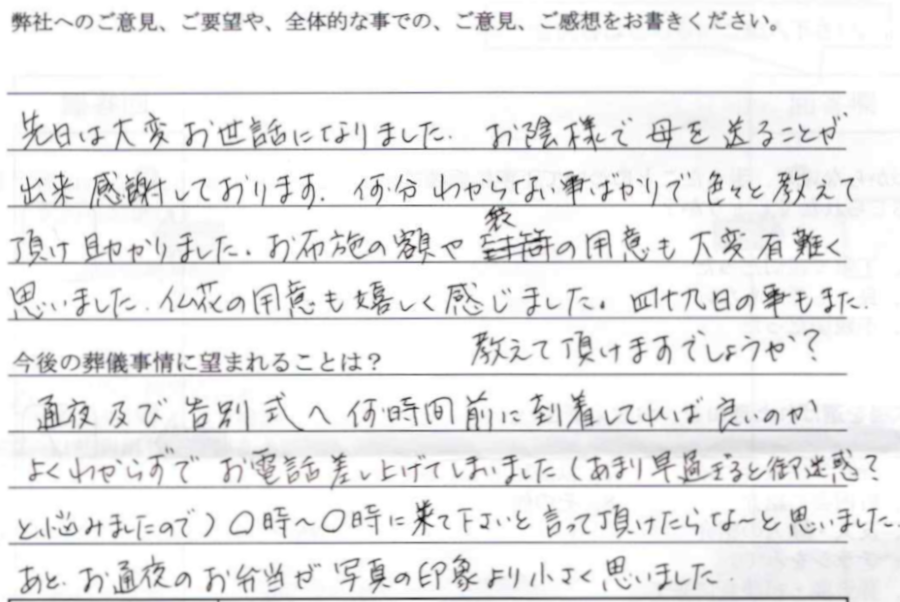 弊社へのご意見、ご要望や、全体的な事での、ご意見、ご感想をお書きください。
先日は大変お世話になりました. お陰様で母を送ることが
出来感謝しております. 何分わからない事ばかりで色々と教えて
頂け助かりました. お布施の額や袋の用意も大変有難く
思いました. 仏花の用意も嬉しく感じました. 四十九日の事もまた.
教えて頂けますでしょうか?
今後の葬儀事情に望まれることは?
通夜及び告別式へ何時間前に到着していれば良いのか
よくわからずでお電話差し上げてしまいました(あまり早過ぎると御迷惑?
と悩みましたので)〇時~〇時に来て下さいと言って頂けたらな~と思いました.
あと、お通夜のお弁当が写真の印象より小さく思いました